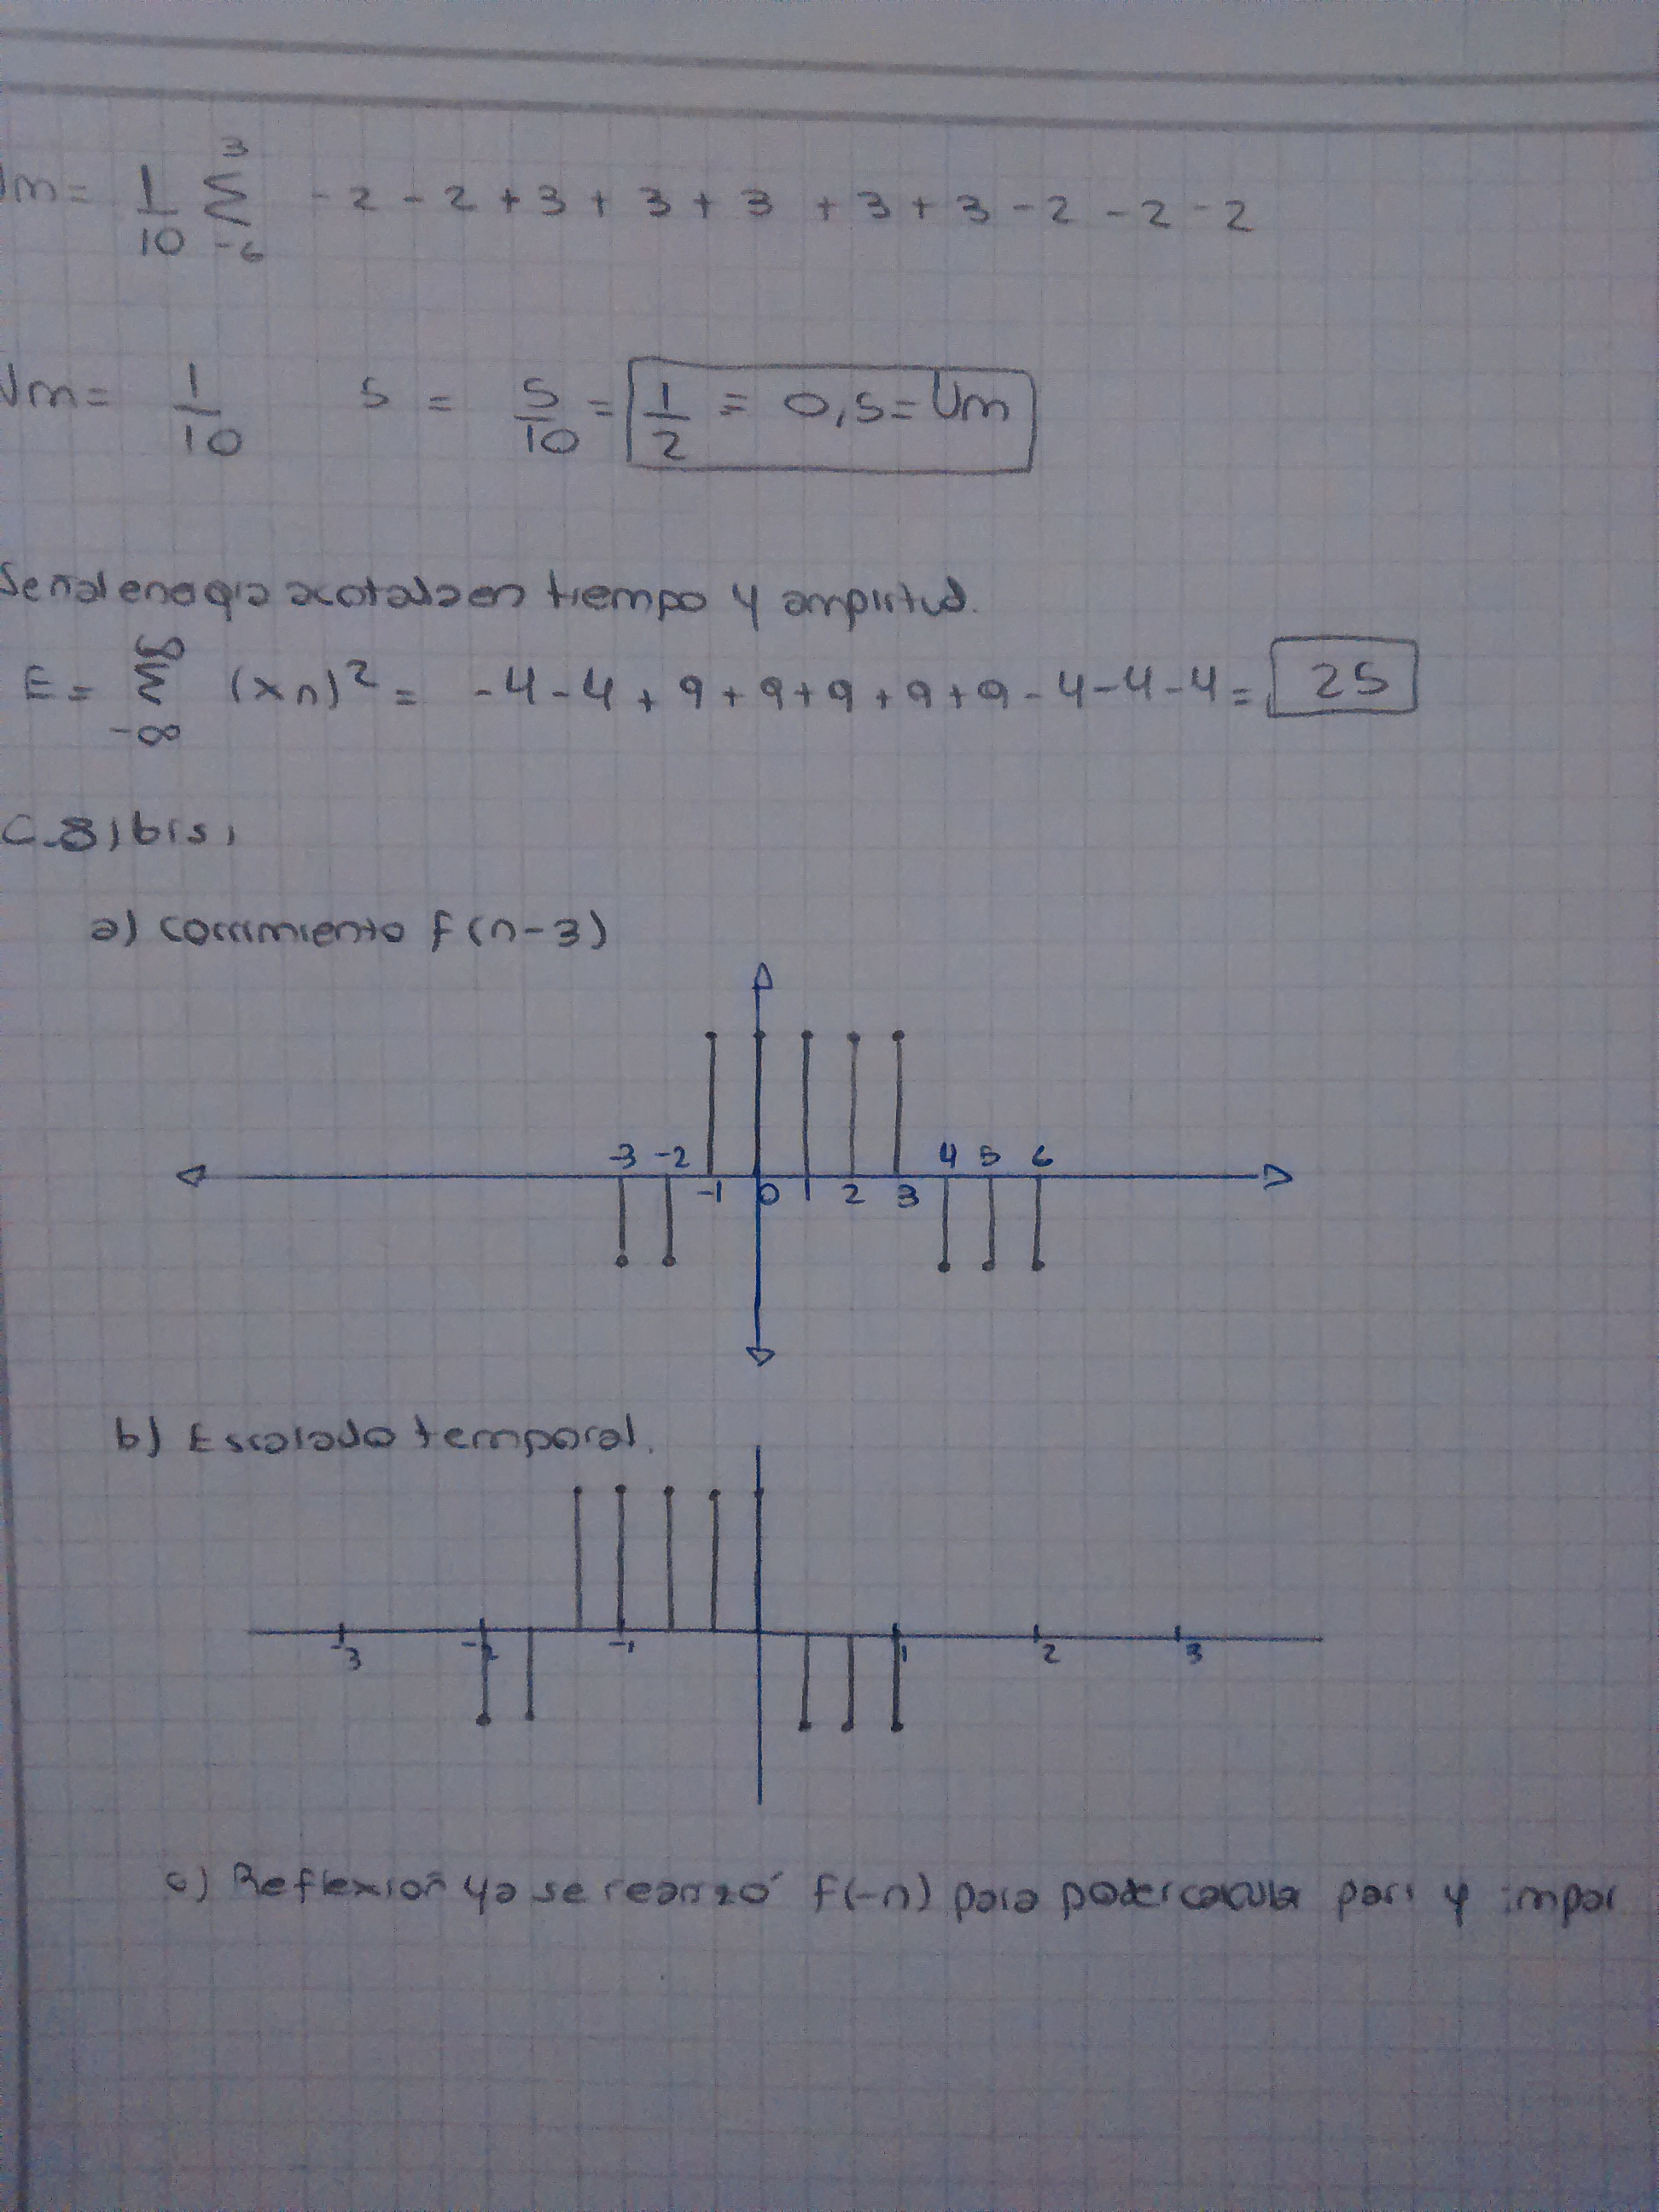 Um = 1/10 3 Σ -6 - 2 - 2 + 3 + 3 + 3 + 3 + 3 - 2 - 2 - 2
Um = 1/10 5 = 5/10 = 1/2 = 0,5 = Um
Señal energia acotada en tiempo y amplitud.
E = ∞ Σ -∞ (xn)² = - 4 - 4 + 9 + 9 + 9 + 9 + 9 - 4 - 4 - 4 = 25
C.8) bis,
a) Corrimiento f(n-3)
-3 -2 4 5 6
-1 0 1 2 3
b) Escalado temporal.
-3 -2 -1 1 2 3
c) Reflexión ya se realizó f(-n) para poder cacular par y impar